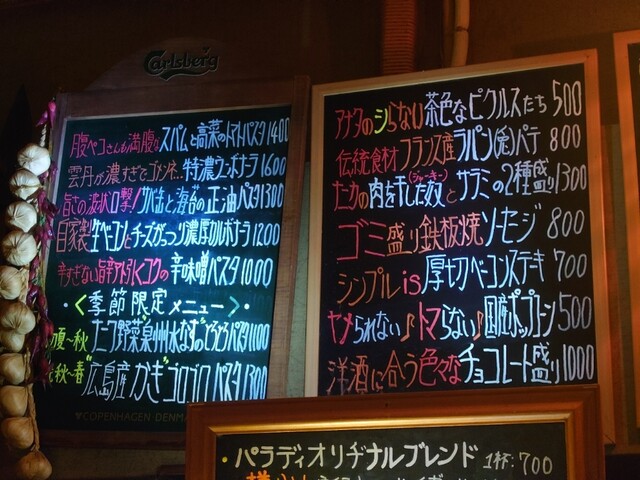 Carlsberg
腹ペコさんも満腹なスパムと高菜のトマトパスタ1400
雲丹が濃すぎてゴメンネ..特濃ウニボナラ1600
旨さの波状口撃!サバ缶と海苔の正油パスタ1300
自家製生ベーコンとチーズがっつり濃厚カルボナーラ1200
辛すぎない旨辛アト引くコクの辛味噌パスタ1000
・<季節限定メニュー>・
夏〜秋 ニーク野菜"泉州水なす"のとろとろパスタ1100
秋〜春"広島産かき"ゴロゴロパスタ1300
COPENHAGEN DENM
アナタのシらない茶色なピクルスたち500
伝統食材フランス産ラパン(兎)パテ800
七カの肉を干した奴(ジャーキー)とサラミの2種盛り1300
ゴミ盛り鉄板焼ソーセージ800
シンプルis厚切ベーコンステーキ700
ヤメられない♪トマらない♪国産ポップコーン500
洋酒に合う色々なチョコレート盛り1000
・パラディオリヂナルブレンド 1杯:700